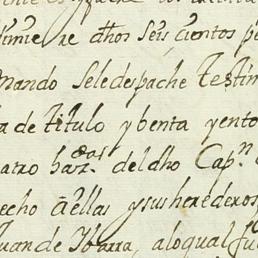 dhos seis cientos pe
mando sele despache testim
a de titulo y benta y ento
atro bar.as del dho Cap.n
echo a ellas y sus herederos
uan de Ybarra, a lo qual fu